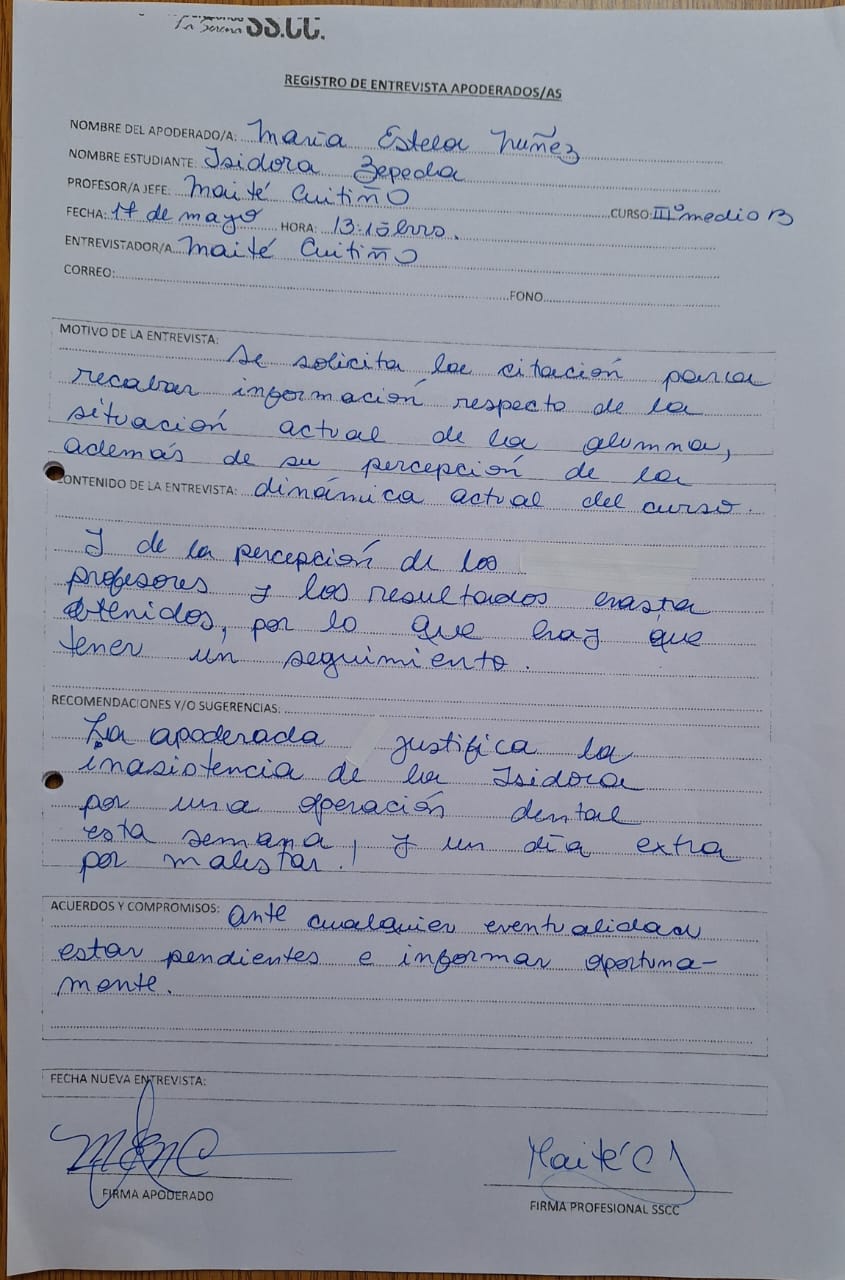 La Serena SS.CC.
REGISTRO DE ENTREVISTA APODERADOS/AS
NOMBRE DEL APODERADO/A: María Estela Nuñez
NOMBRE ESTUDIANTE: Isidora Zepeda
PROFESOR/A JEFE: Maité Cuitiño
CURSO: III° medio B
FECHA: 17 de mayo HORA: 13:15 hrs.
ENTREVISTADOR/A Maité Cuitiño
CORREO: FONO
MOTIVO DE LA ENTREVISTA:
Se solicita la citación para
recabar información respecto de la
situación actual de la alumna,
además de su percepción de la
CONTENIDO DE LA ENTREVISTA: dinámica actual del curso.
Y de la percepción de los
profesores y los resultados hasta
obtenidos, por lo que hay que
tener un seguimiento.
RECOMENDACIONES Y/O SUGERENCIAS:
La apoderada justifica la
inasistencia de la Isidora
por una operación dental
esta semana, y un día extra
por malestar.
ACUERDOS Y COMPROMISOS: ante cualquier eventualidad
estar pendientes e informar oportuna-
mente.
FECHA NUEVA ENTREVISTA:
Maité C
FIRMA APODERADO
FIRMA PROFESIONAL SSCC